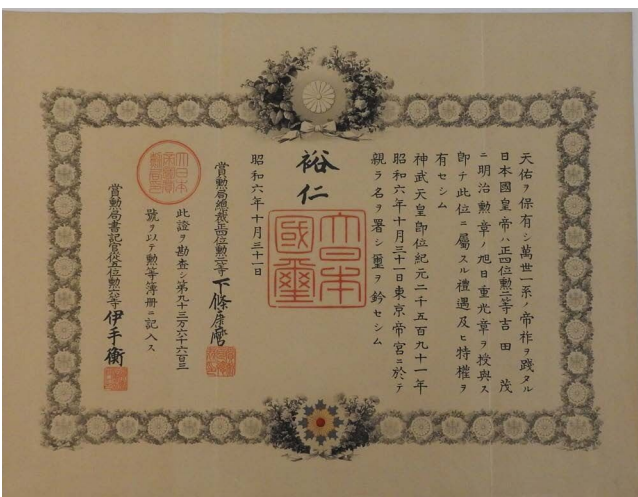 天佑ヲ保有シ萬世一系ノ帝祚ヲ踐タル
日本國皇帝ハ正四位勲二等吉田茂
ニ明治勲章ノ旭日重光章ヲ授與ス
即チ此位ニ屬スル禮遇及ヒ特權ヲ
有セシム
神武天皇即位紀元二千五百九十一年
昭和六年十月三十一日東京帝宮ニ於テ
親ラ名ヲ署シ璽ヲ鈐セシム
裕仁
大日本
國璽
昭和六年十月三十一日
賞勲局總裁正四位勲二等下條康麿
此證ヲ勘査シ第九十三万六千六百三
號ヲ以テ勲等簿冊ニ記入ス
賞勲局書記官從五位勲六等伊手衡